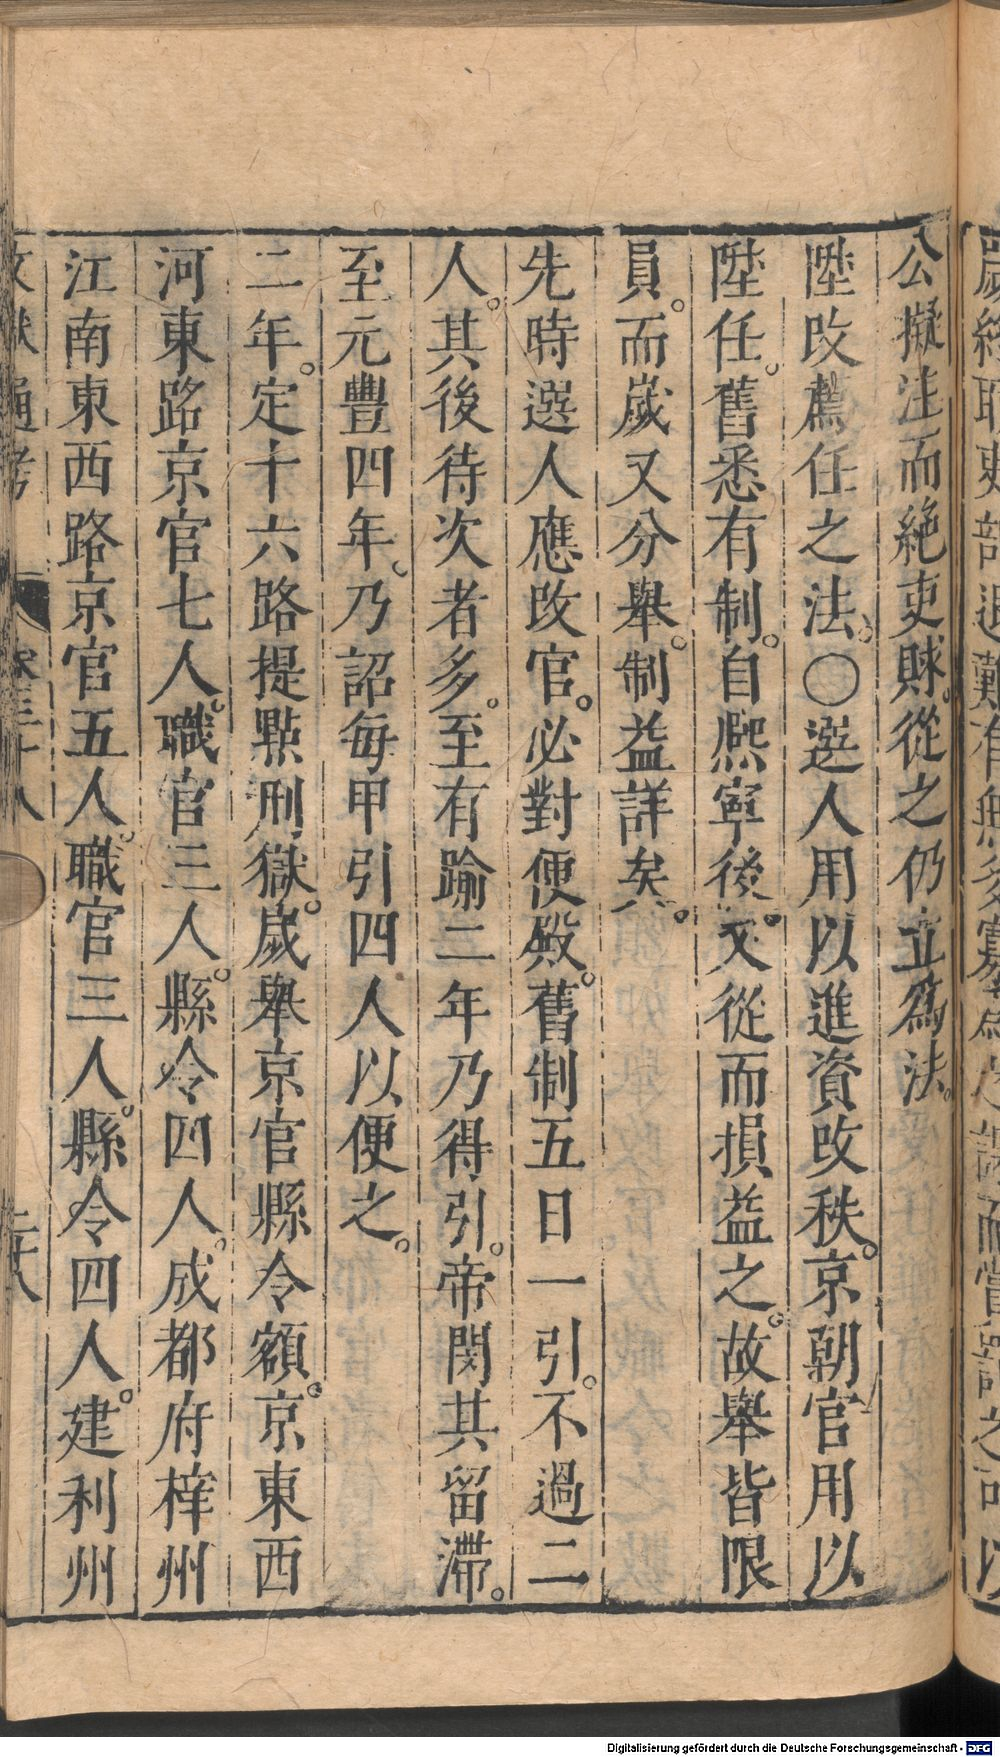 公擬注而絶吏賕。從之仍立爲法。
陞改薦任之法。○選人用以進資改秩。京朝官用以
陞任。舊悉有制。自熈寧後。又從而損益之。故舉皆限
員。而歲又分舉。制益詳矣。
先時選人應改官。必對便殿。舊制五日一引。不過二
人。其後待次者多。至有踰二年乃得引。帝閔其留滯。
至元豐四年。乃詔每甲引四人以便之。
二年。定十六路提㸃刑獄。歲舉京官縣令額。京東西
河東路京官七人。職官三人。縣令四人。成都府梓州
江南東西路京官五人。職官三人。縣令四人。建利州
文獻通考 卷三十八 二十八
Digitalisierung gefördert durch die Deutsche Forschungsgemeinschaft - DFG